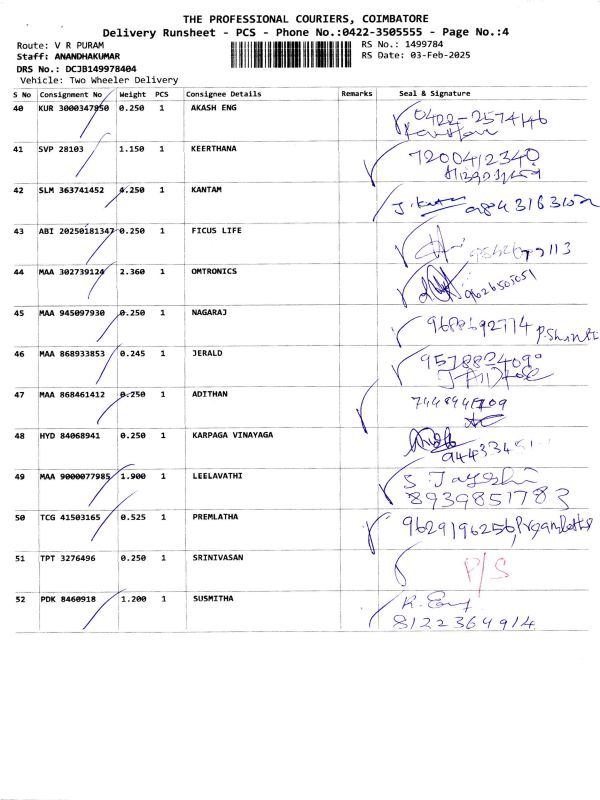 THE PROFESSIONAL COURIERS, COIMBATORE
Delivery Runsheet - PCS - Phone No.:0422-3505555 - Page No.:4
Route: V R PURAM RS No.: 1499784
Staff: ANANDHAKUMAR RS Date: 03-Feb-2025
DRS No.: DCJB149978404
Vehicle: Two Wheeler Delivery
S No Consignment No Weight PCS Consignee Details Remarks Seal & Signature
40 KUR 3000347850 0.250 1 AKASH ENG 0422-2574146
41 SVP 28103 1.150 1 KEERTHANA 7200412340
42 SLM 363741452 4.250 1 KANTAM
43 ABI 20250181347 0.250 1 FICUS LIFE
44 MAA 302739124 2.360 1 OMTRONICS 9626505051
45 MAA 945097930 0.250 1 NAGARAJ
46 MAA 868933853 0.245 1 JERALD
47 MAA 868461412 0.250 1 ADITHAN
48 HYD 84068941 0.250 1 KARPAGA VINAYAGA
49 MAA 9000077985 1.900 1 LEELAVATHI
8939851783
50 TCG 41503165 0.525 1 PREMLATHA 9629196256
51 TPT 3276496 0.250 1 SRINIVASAN P/S
52 PDK 8460918 1.200 1 SUSMITHA
8122364914